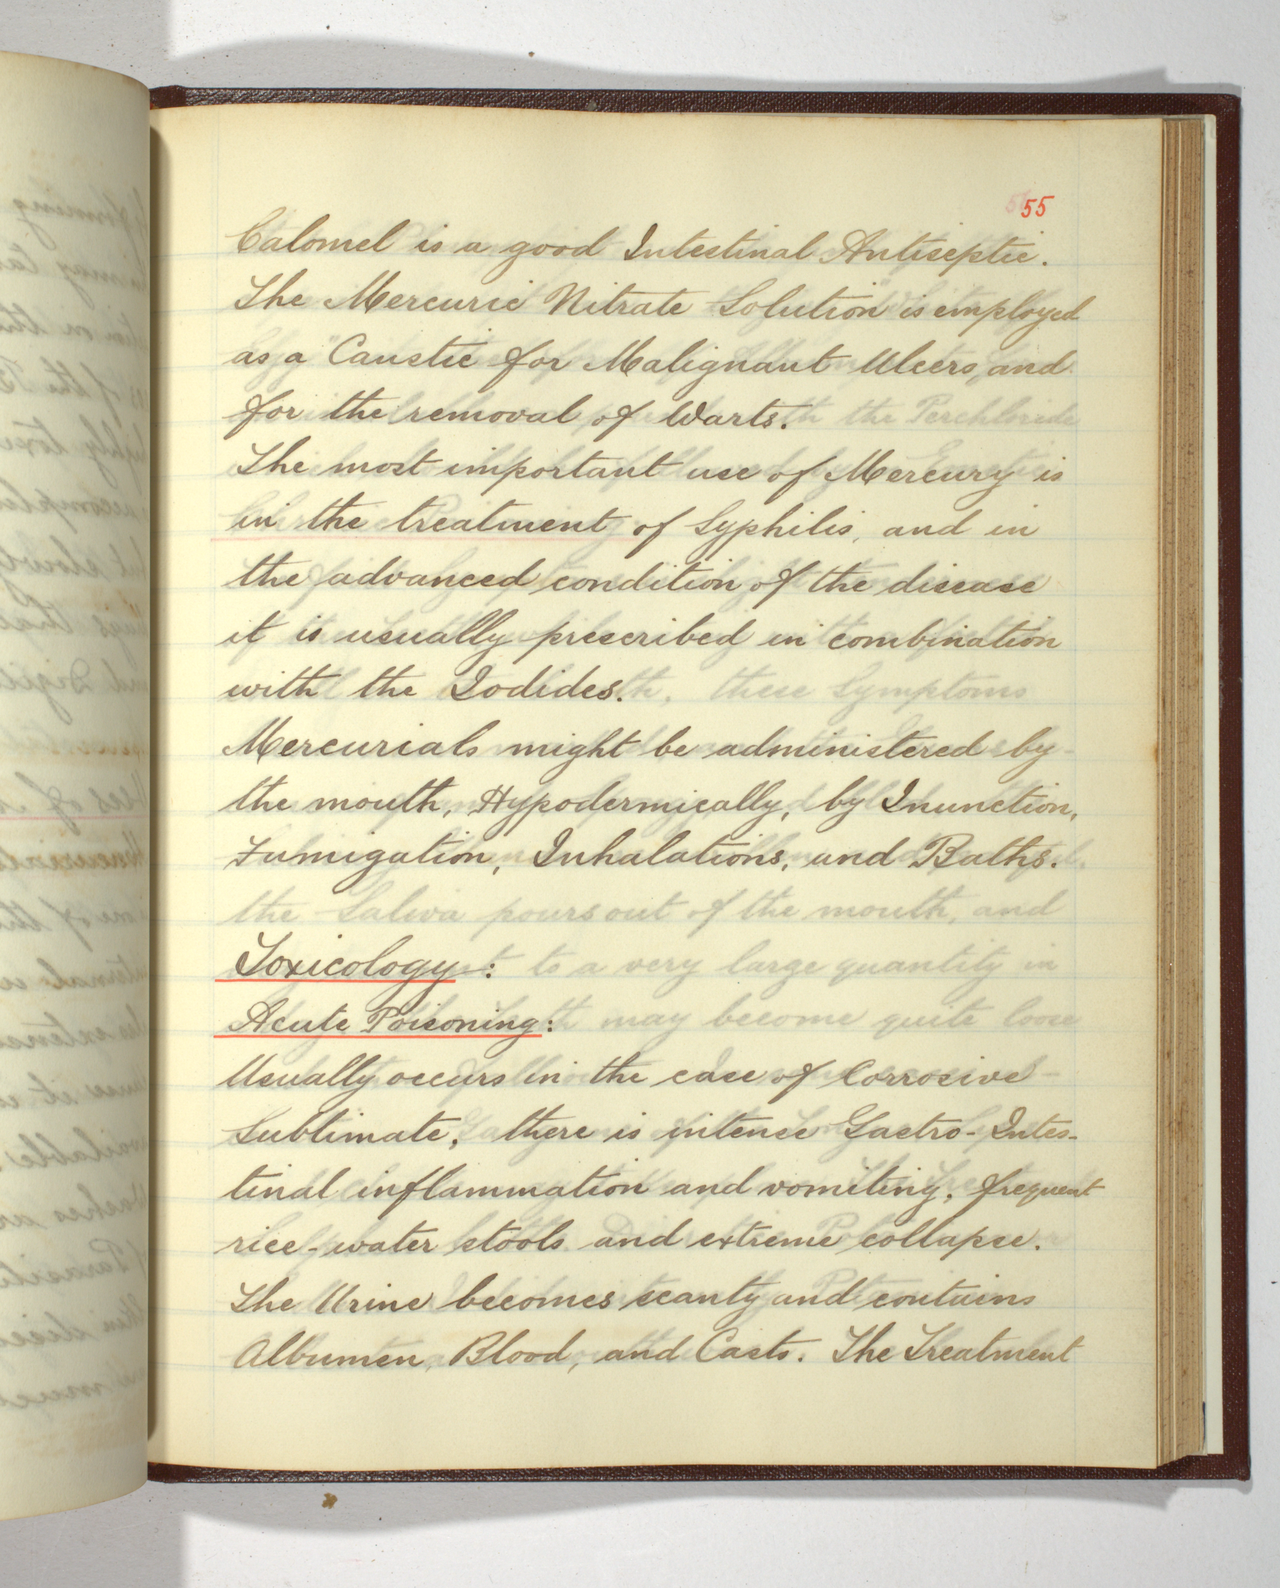 55
Calomel is a good Intestinal Antiseptic.
The Mercuric Nitrate Solution is employed
as a Caustic for Malignant Ulcers, and
for the removal of Warts.
The most important use of Mercury is
in the treatment of Syphilis, and in
the advanced condition of the disease
it is usually prescribed in combination
with the Iodides.
Mercurials might be administered by
the mouth, Hypodermically, by Inunction,
Fumigation, Inhalations, and Baths.
Toxicology:
Acute Poisoning:
Usually occurs in the case of Corrosive
Sublimate, there is intense Gastro-Intes-
tinal inflammation and vomiting, frequent
rice-water stools and extreme collapse.
The Urine becomes scanty and contains
Albumen, Blood, and Casts. The Treatment